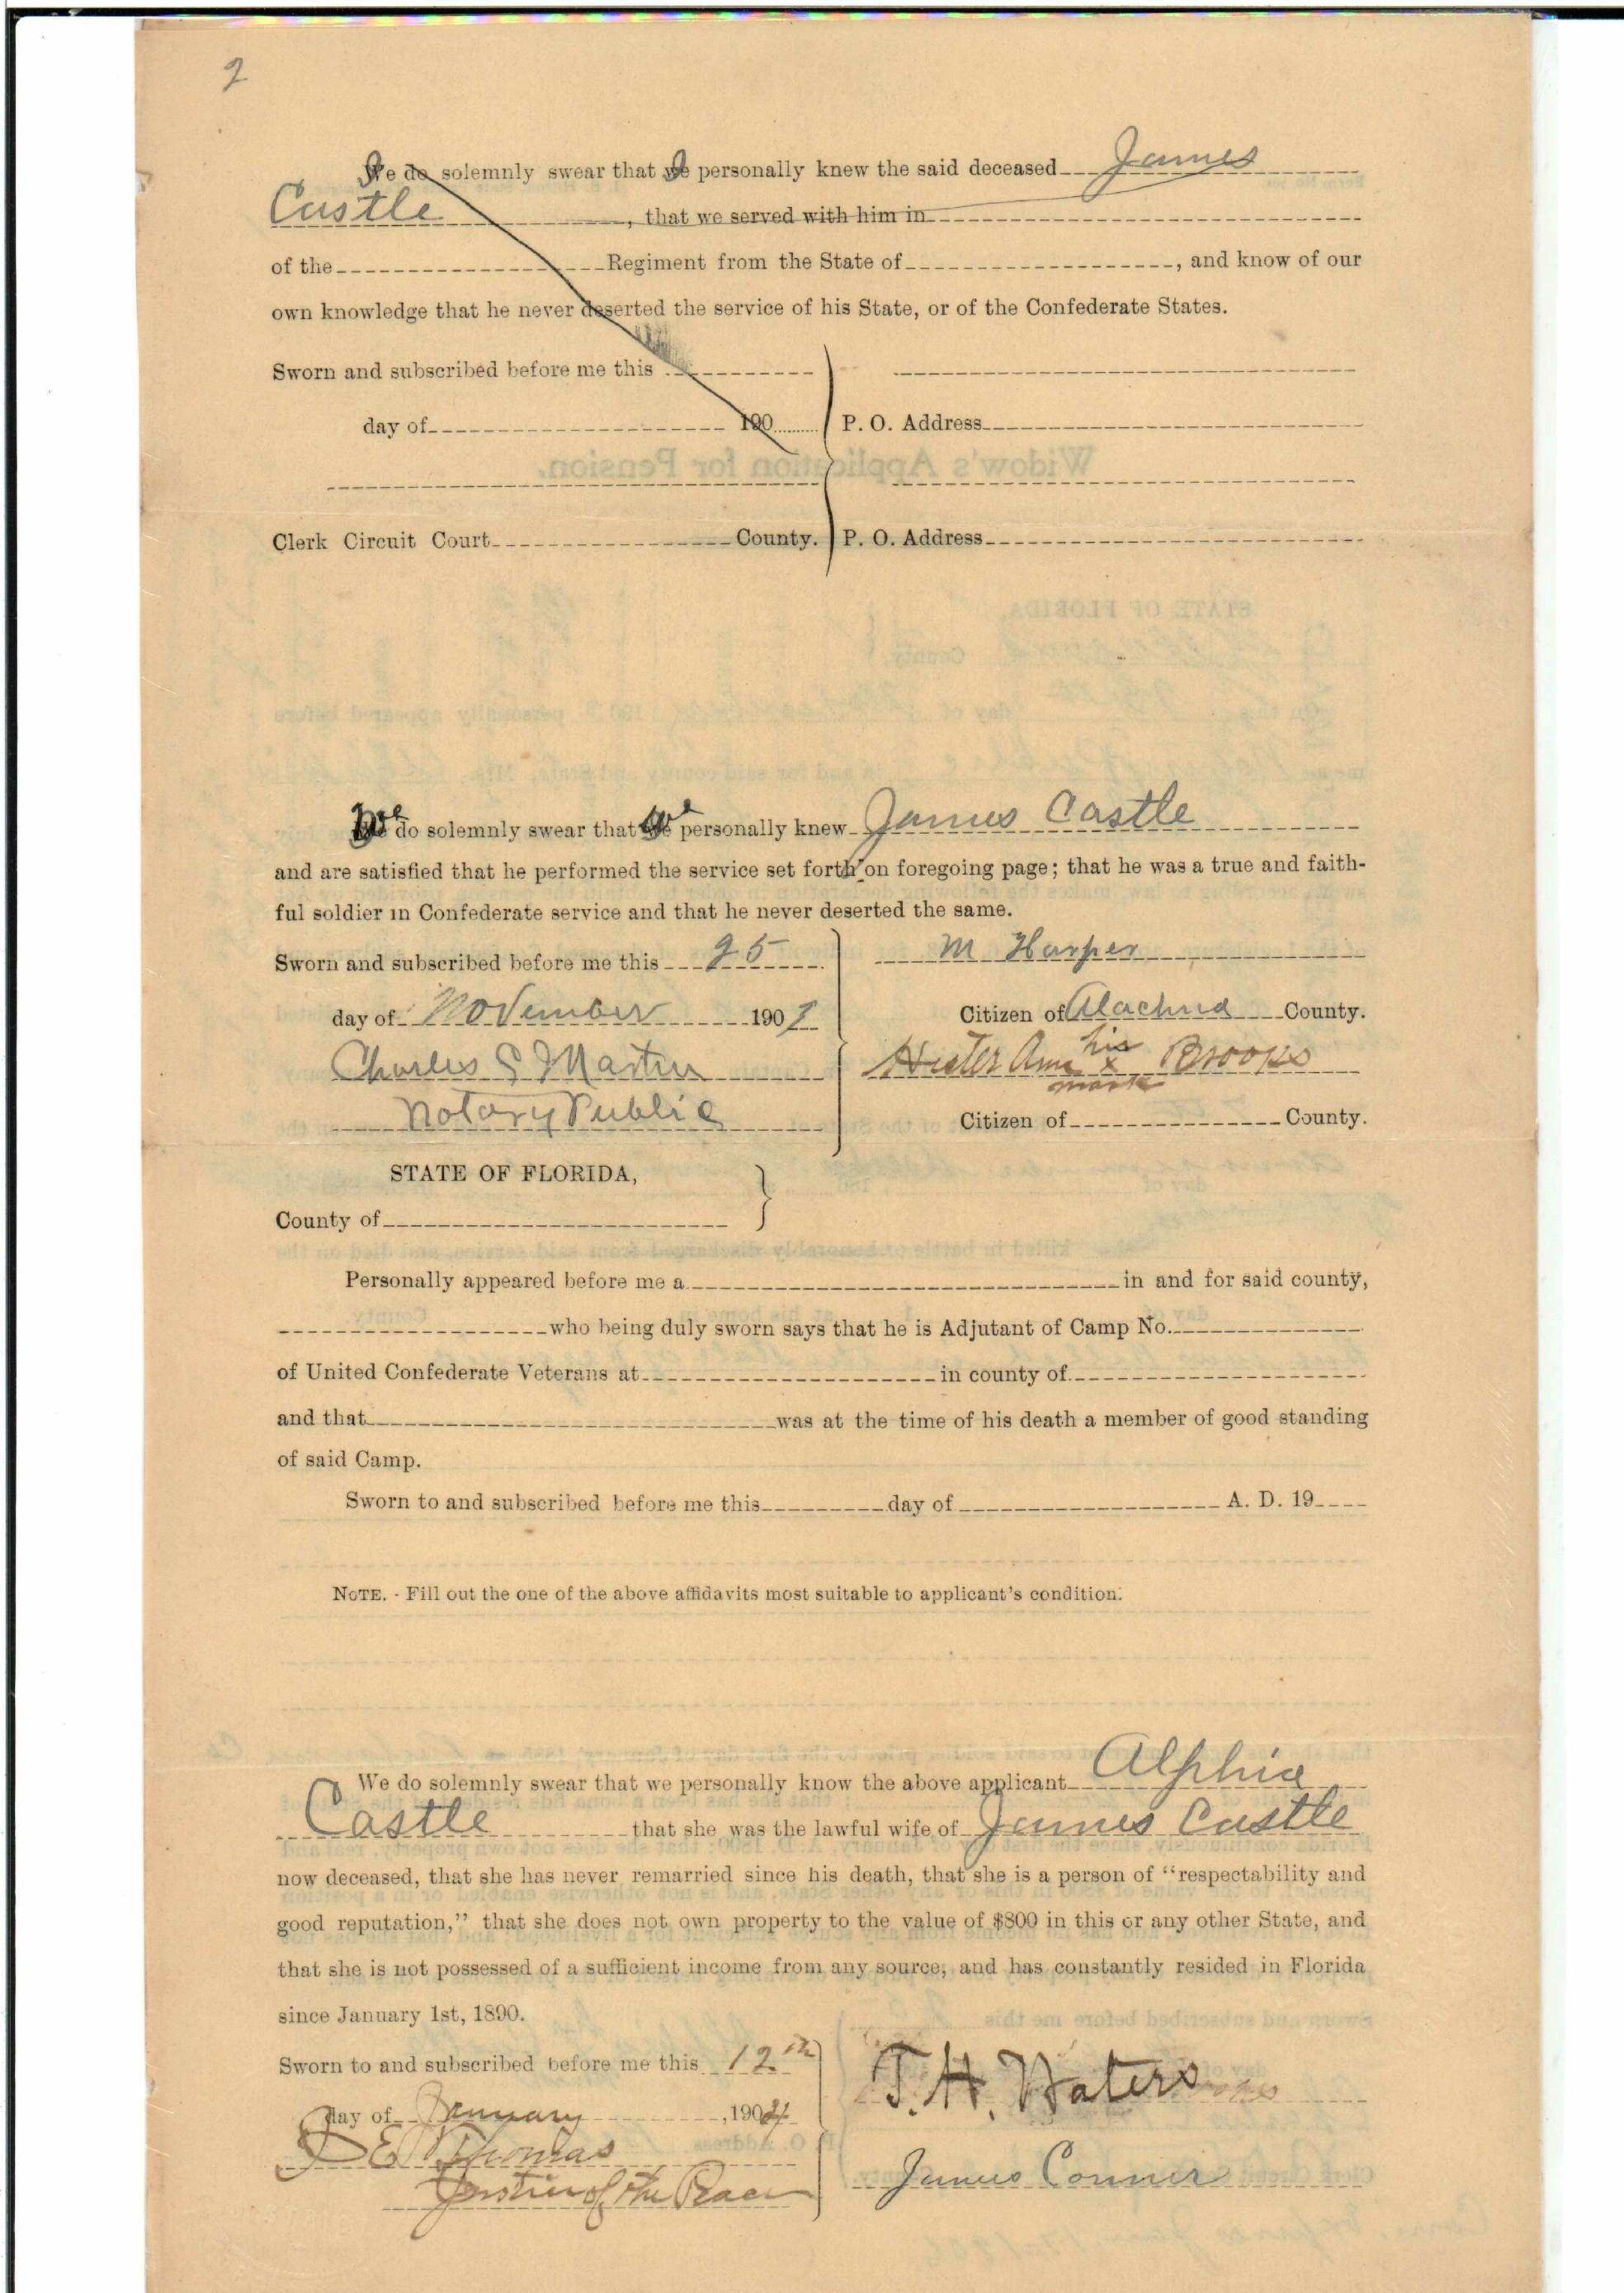 2
We do solemnly swear that we personally knew the said deceased James
Castle, that we served with him in
of the Regiment from the State of , and know of our
own knowledge that he never deserted the service of his State, or of the Confederate States.
Sworn and subscribed before me this
day of 190 P. O. Address
Widow's Application for Pension.
Clerk Circuit Court County. P. O. Address
STATE OF FLORIDA,
County.
We do solemnly swear that we personally knew James Castle
and are satisfied that he performed the service set forth on foregoing page; that he was a true and faith-
ful soldier in Confederate service and that he never deserted the same.
Sworn and subscribed before me this 25 M Harper
day of November 1903 Citizen of Alachua County.
Charles S Martin Hester Ann his x mark Brooks
Notary Public
Citizen of County.
STATE OF FLORIDA,
County of
Personally appeared before me a in and for said county,
who being duly sworn says that he is Adjutant of Camp No.
of United Confederate Veterans at in county of
and that was at the time of his death a member of good standing
of said Camp.
Sworn to and subscribed before me this day of A. D. 19
NOTE. - Fill out the one of the above affidavits most suitable to applicant's condition.
We do solemnly swear that we personally know the above applicant Alphia
Castle that she was the lawful wife of James Castle
now deceased, that she has never remarried since his death, that she is a person of "respectability and
good reputation," that she does not own property to the value of $800 in this or any other State, and
that she is not possessed of a sufficient income from any source, and has constantly resided in Florida
since January 1st, 1890.
Sworn to and subscribed before me this 12th T. H. Waters
day of January, 1904
Thomas James Conner
Justice of the Peace